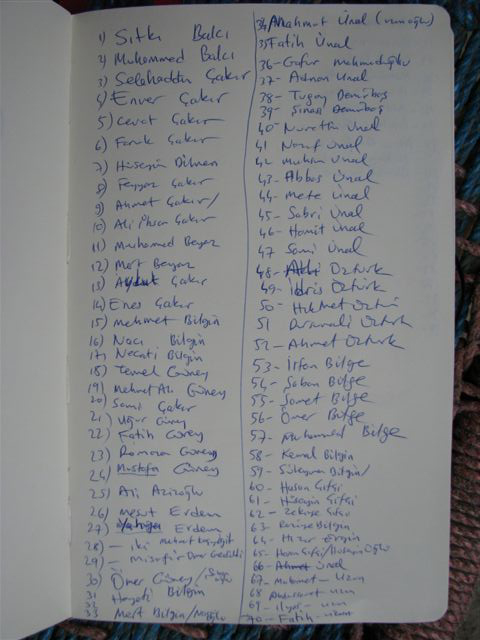 1) Sıtkı Balcı
2) Muhammed Balcı
3) Selehaddin Çakır
4) Enver Çakır
5) Cevat Çakır
6) Faruk Çakır
7) Hüseyin Dilmen
8) Feyyaz Çakır
9) Ahmet Çakır/
10) Ali İhsan Çakır
11) Muhamed Beyaz
12) Mert Beyaz
13) Çakır
14) Enes Çakır
15) Mehmet Bilgin
16) Naci Bilgin
17) Necati Bilgin
18) Temel Güney
19) Mehmet Ali Güney
20) Sami Çakır
21) Uğur Güney
22) Fatih Güney
23) Ramazan Güney
24) Mustafa Güney
25) Ali Azizoğlu
26) Mesut Erdem
27) Yahya Erdem
28) — iki Mehmet
29) — misafir Ömer
30) Ömer Güney/
31 Hayati Bilgin
32
33 Mert Bilgin/
34 Mahmut Ünal
35 Fatih Ünal
36- Gafur Mahmudoğlu
37- Adnan Ünal
38- Tugay Demirbaş
39- Sinasi Demirbaş
40- Nurettin Ünal
41 Nazif Ünal
42 Muhsin Ünal
43- Abbas Ünal
44- Mete Ünal
45- Sabri Ünal
46- Hamit Ünal
47 Sami Ünal
48- Öztürk
49- İdris Öztürk
50- Hikmet Öztürk
51 Dursunali Öztürk
52- Ahmet Öztürk
53- İrfan Bilge
54- Şaban Bilge
55- Samet Bilge
56- Ömer Bilge
57- Muhammed Bilge
58- Kemal Bilgin
59- Süleyman Bilgin/
60- Hasan Çifçi
61- Hüseyin Çifçi
62- Zekeriye Çifçi
63- Bilgin
64- Hızır Ergin
65-
66- Ahmet Ünal
67- Mehmet - Uzun
68 Uzun
69- İlyas - Uzun
70- Fatih - Uzun